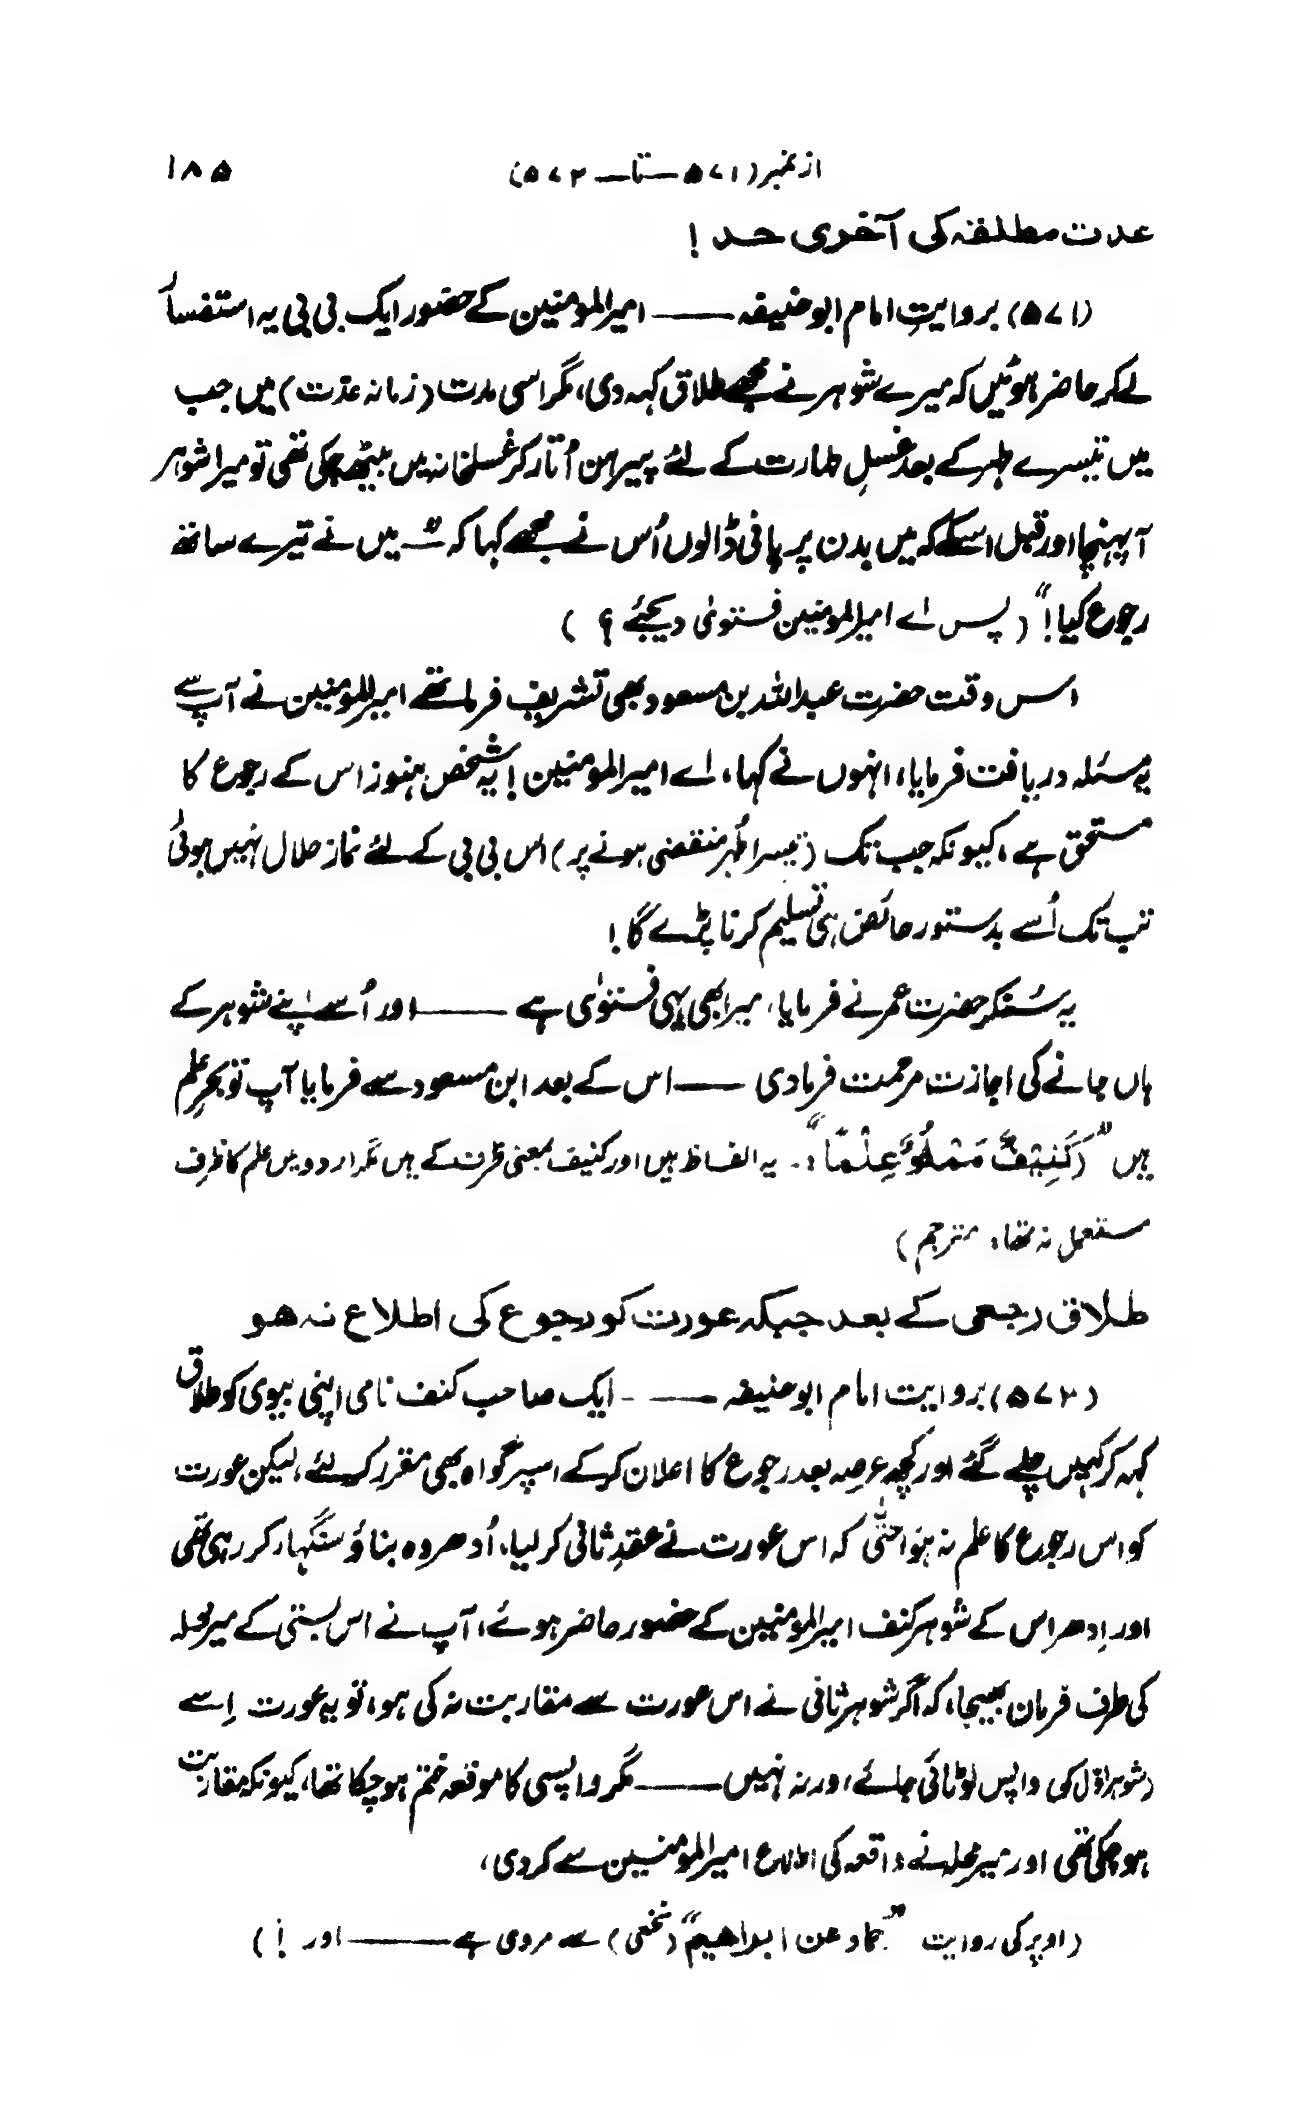 از نمبر (۵۷۱ — تا — ۵۷۲) ۱۸۵
عدت مطلقہ کی آخری حد !
(۵۷۱) بروایتِ امام ابو حنیفہ —— امیر المومنین کے حضور ایک بی بی یہ استفساً
لے کر حاضر ہوئیں کہ میرے شوہر نے مجھے طلاق کہہ دی، مگر اسی مدت (زمانہ عدّت) میں جب
میں تیسرے طہر کے بعد غسلِ طہارت کے لئے پیراہن اُتار کر غسلخانہ میں بیٹھ چکی تھی تو میرا شوہر
آپہنچا اور قبل اسکے کہ میں بدن پر پانی ڈالوں اُس نے مجھے کہا کہ — ”میں نے تیرے ساتھ
رجوع کیا!“ (پس اے امیر المومنین فتویٰ دیجئے ؟ )
اس وقت حضرت عبداللہ بن مسعود بھی تشریف فرما تھے امیر المومنین نے آپ سے
یہ مسئلہ دریافت فرمایا، انہوں نے کہا، اے امیر المومنین ! یہ شخص ہنوز اس کے رجوع کا
مستحق ہے، کیونکہ جب تک (تیسرا طُہر منقضی ہونے پر) اس بی بی کے لئے نماز حلال نہیں ہوئی
تب تک اُسے بدستور حائض ہی تسلیم کرنا پڑے گا !
یہ سُنکر حضرت عمر نے فرمایا، میرا بھی یہی فتویٰ ہے —— اور اُسے اپنے شوہر کے
ہاں جانے کی اجازت مرحمت فرمادی — اس کے بعد ابن مسعود سے فرمایا آپ تو بحرِ علم
ہیں ”(کَنِیْفٌ مَمْلُوٌّ عِلْمًا“ :- یہ الفاظ ہیں اور کنیف بمعنی ظرف کے ہیں مگر اردو میں علم کا ظرف
مستعمل نہ تھا: مترجم )
طلاق رجعی کے بعد جبکہ عورت کو رجوع کی اطلاع نہ ہو
(۵۷۲) بروایت امام ابو حنیفہ —— - ایک صاحب کنف نامی اپنی بیوی کو طلاق
کہہ کر کہیں چلے گئے اور کچھ عرصہ بعد رجوع کا اعلان کر کے اسپر گواہ بھی مقرر کر لئے، لیکن عورت
کو اس رجوع کا علم نہ ہوا حتّٰی کہ اس عورت نے عقدِ ثانی کر لیا، اُدھر وہ بناؤ سنگہار کر رہی تھی
اور اِدھر اس کے شوہر کنف امیر المومنین کے حضور حاضر ہوئے، آپ نے اس بستی کے میر محلہ
کی طرف فرمان بھیجا، کہ اگر شوہر ثانی نے اس عورت سے مقاربت نہ کی ہو، تو یہ عورت اِسے
(شوہر اوّل کو) واپس لوٹائی جائے، ورنہ نہیں —— مگر واپسی کا موقعہ ختم ہو چکا تھا، کیونکہ مقاربت
ہو چکی تھی اور میر محلہ نے واقعہ کی اطلاع امیر المومنین سے کر دی،
(اوپر کی روایت ”حماد عن ابراھیم“ (نخعی) سے مروی ہے —— اور ! )